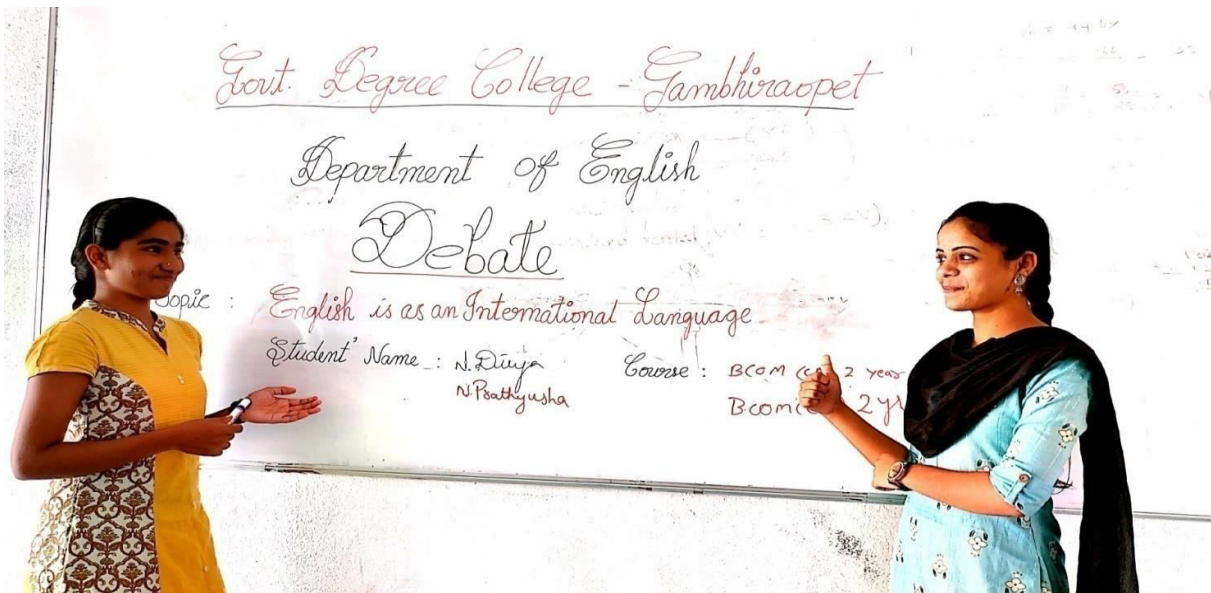 Govt. Degree College - Gambhiraopet
Department of English
Debate
Topic : English is as an International Language
Student' Name : N. Divya Course : BCOM 2 year
N. Prathyusha B.com 2 yr